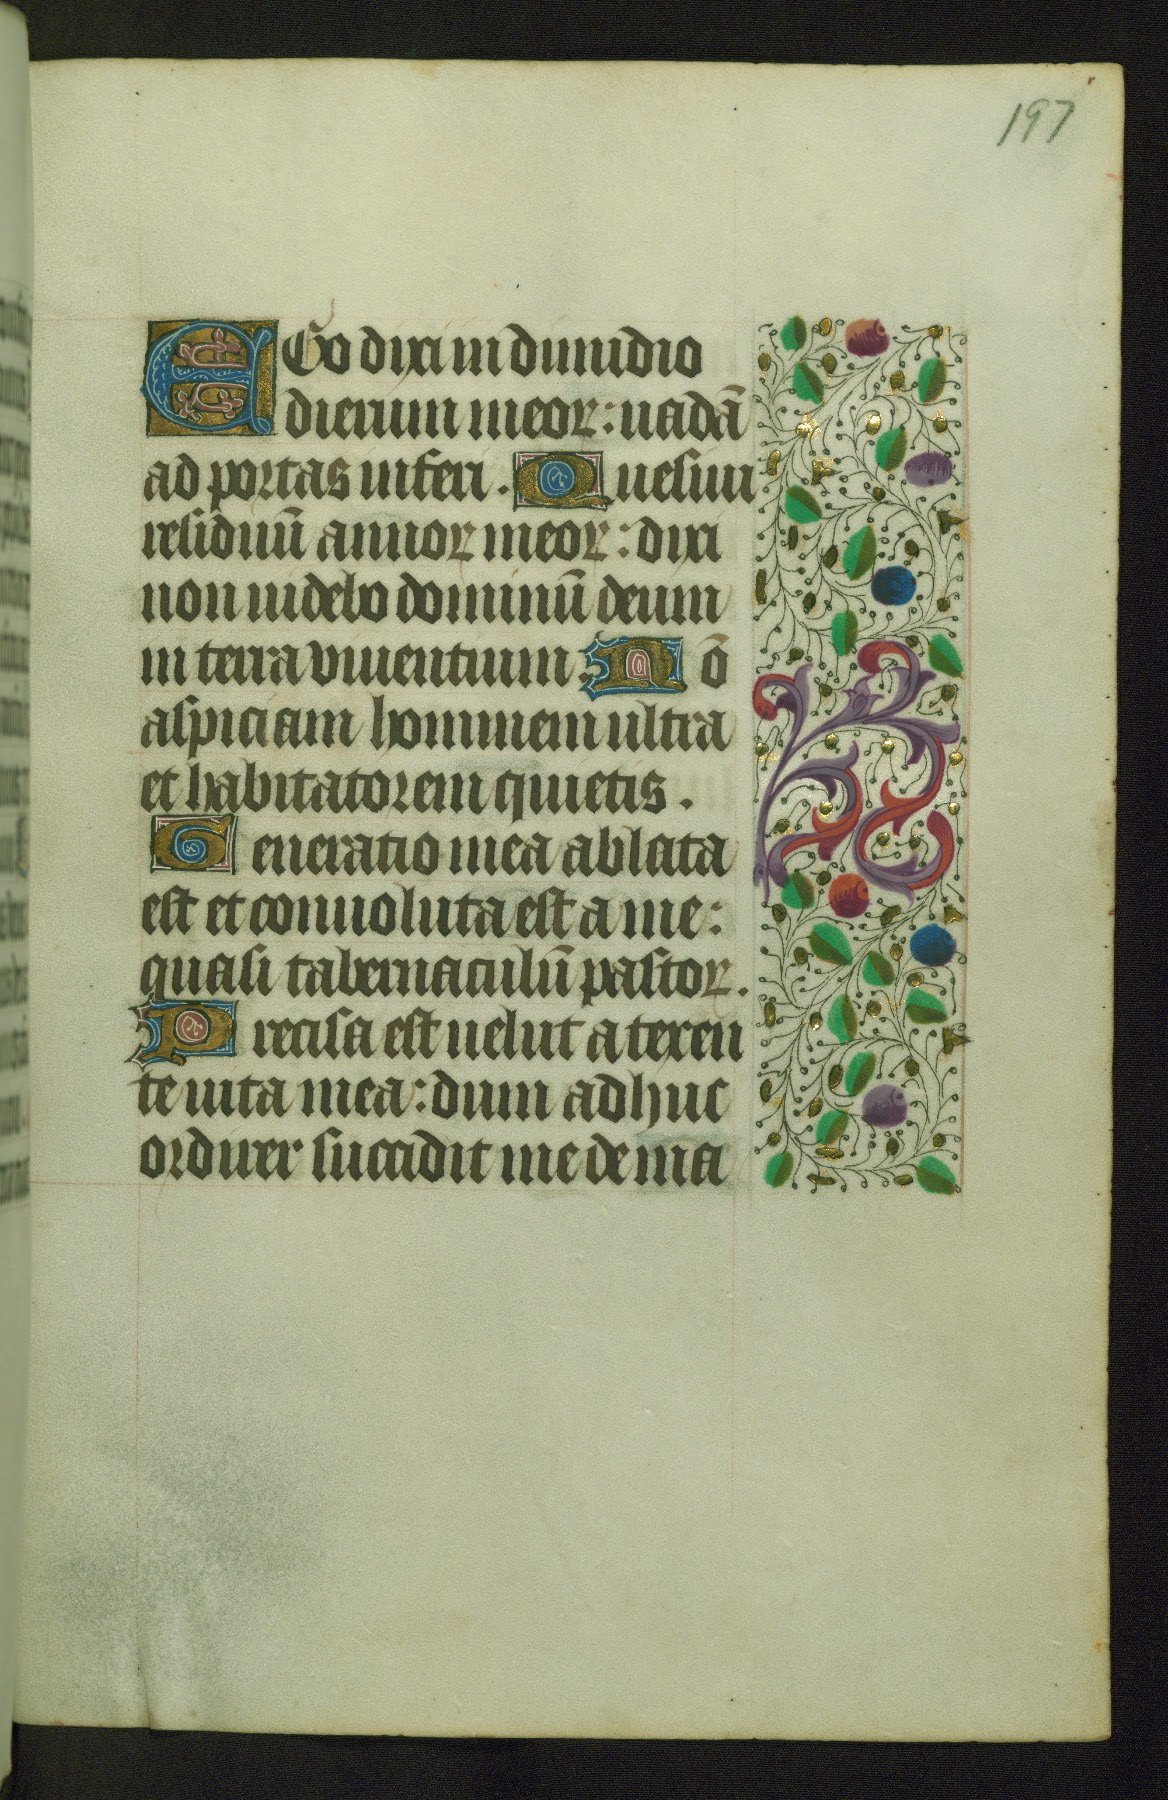 197
EGo dixi in dimidio
dierum meoꝝ: uadā
ad portas inferi. Quesiui
residuū annoꝝ meoꝝ: dixi
non uidebo dominū deum
in terra viuentium. Nō
aspiciam hominem ultra
et habitatorem quietis.
Generatio mea ablata
est et conuoluta est a me:
quasi tabernaculū pastoꝝ.
Precisa est uelut a texen
te uita mea: dum adhuc
ordirer succidit me de ma